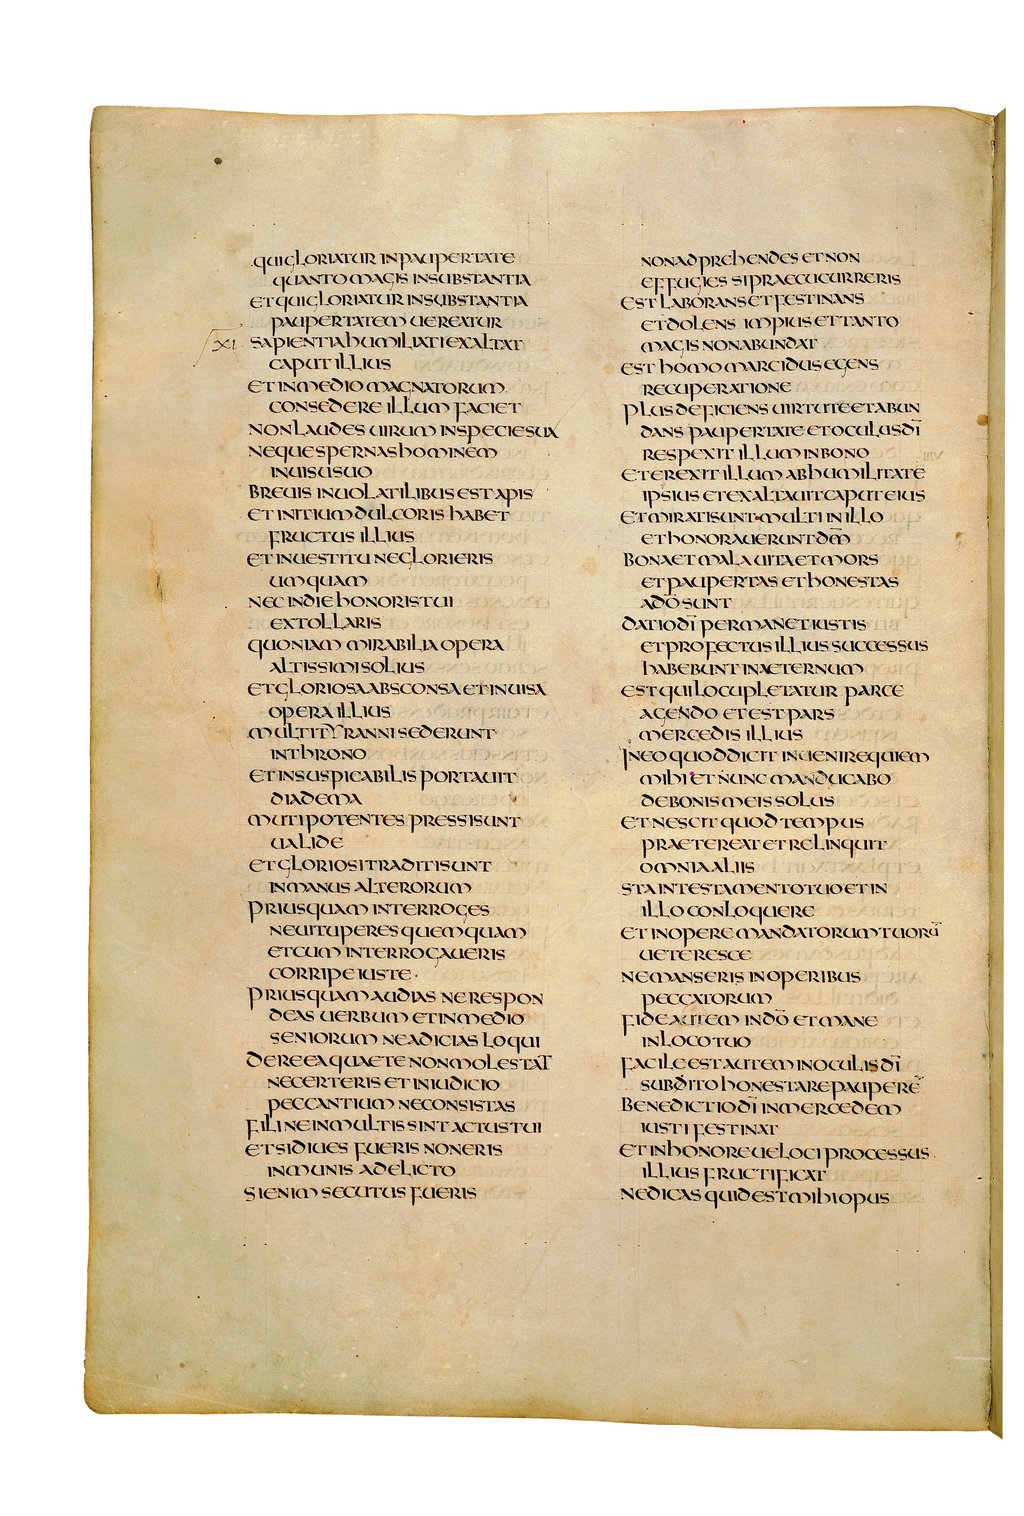 qui gloriatur in paupertate
quanto magis in substantia
et qui gloriatur in substantia
paupertatem uereatur
XI sapientia humiliati exaltat
caput illius
et in medio magnatorum
consedere illum faciet
non laudes uirum in specie sua
neque spernas hominem
in uisu suo
breuis in uolatilibus est apis
et initium dulcoris habet
fructus illius
et in uestitu ne glorieris
umquam
nec in die honoris tui
extollaris
quoniam mirabilia opera
altissimi solius
et gloriosa absconsa et inuisa
opera illius
multi tyranni sederunt
in throno
et insuspicabilis portauit
diadema
muti potentes pressi sunt
ualide
et gloriosi traditi sunt
in manus alterorum
priusquam interroges
ne uituperes quemquam
et cum interrogaueris
corripe iuste·
priusquam audias ne respon
deas uerbum et in medio
seniorum ne adicias loqui
de re ea quae te non molestat
ne certeris et in iudicio
peccantium ne consistas
fili ne in multis sint actus tui
et si diues fueris non eris
inmunis a delicto
si enim secutus fueris
non adprehendes et non
effugies si praecucurreris
est laborans et festinans
et dolens impius et tanto
magis non abundat
est homo marcidus egens
recuperatione
plus deficiens uirtute et abun
dans paupertate et oculus dī
respexit illum in bono
et erexit illum ab humilitate
ipsius et exaltauit caput eius
et mirati sunt multi in illo
et honorauerunt dm̄
bona et mala uita et mors
et paupertas et honestas
a dō sunt
datio dī permanet iustis
et profectus illius successus
habebunt in aeternum
est qui locupletatur parce
agendo et est pars
mercedis illius
in eo quod dicit inueni requiem
mihi et nunc manducabo
de bonis meis solus
et nescit quod tempus
praetereat et relinquit
omnia aliis
sta in testamento tuo et in
illo conloquere
et in opere mandatorum tuorū
ueteresce
ne manseris in operibus
peccatorum
fide autem in dō et mane
in loco tuo
facile est autem in oculis dī
subito honestare pauperē
benedictio dī in mercedem
iusti festinat
et in honore ueloci processus
illius fructificat
ne dicas quid est mihi opus